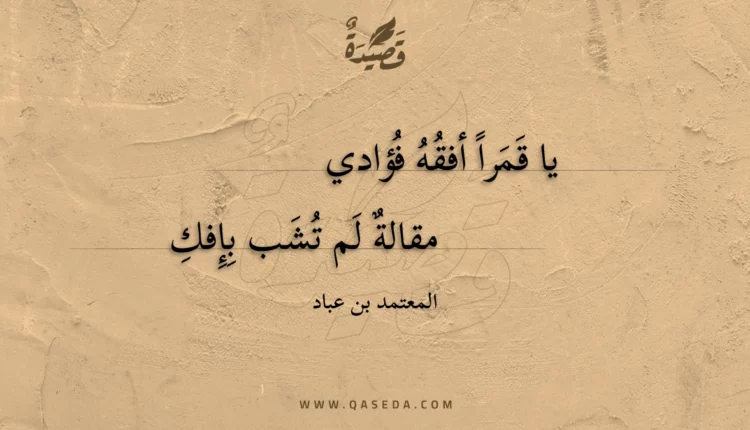 قَصِيْدَةٌ
يا قَمَراً أفقُهُ فُؤادي
مقالةٌ لَم تُشَب بِإِفكِ
المعتمد بن عباد
WWW.QASEDA.COM